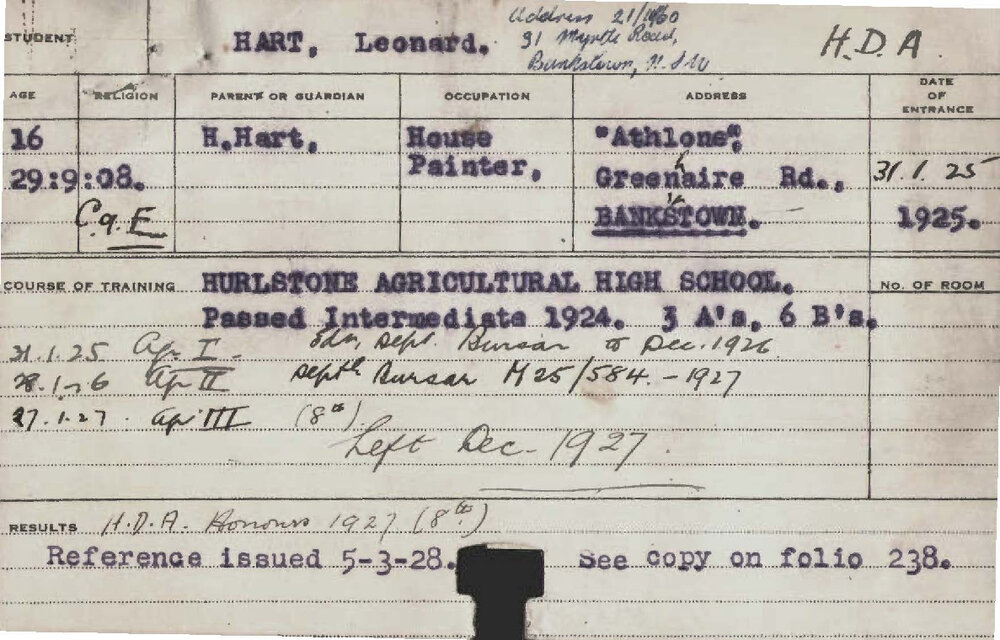 Address 21/11/60
STUDENT HART, Leonard. 91 Myrtle Road, H.D.A.
Bankstown, N.S.W
AGE RELIGION PARENT OR GUARDIAN OCCUPATION ADDRESS DATE OF ENTRANCE
16 H.Hart, House "Athlone",
29:9:08. Painter, Greenaire Rd., 31.1.25
h
C of E BANKSTOWN. 1925.
COURSE OF TRAINING HURLSTONE AGRICULTURAL HIGH SCHOOL. No. OF ROOM
Passed Intermediate 1924. 3 A's, 6 B's.
31.1.25 Ag. I. Edn. Dept. Bursar to Dec. 1926
28.1.26 Ag II Deptl Bursar M25/584. - 1927
27.1.27. Ag III (8th)
Left Dec. 1927.
RESULTS H.D.A. Honours 1927 (8th)
Reference issued 5-3-28. See copy on folio 238.